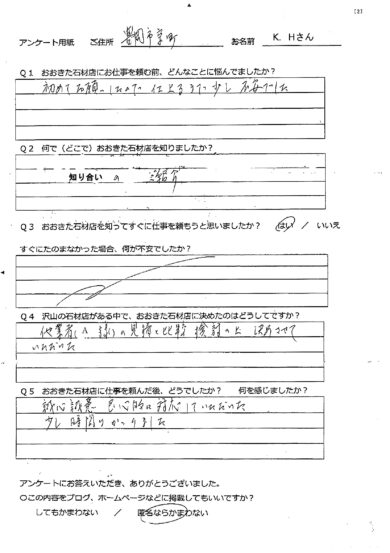 アンケート用紙 ご住所 豊岡市 お名前 K. Hさん
Q1 おおきた石材店にお仕事を頼む前、どんなことに悩んでましたか?
初めてお願いしたので 仕上るまで少し不安でした
Q2 何で(どこで)おおきた石材店を知りましたか?
知り合い の ご紹介
Q3 おおきた石材店を知ってすぐに仕事を頼もうと思いましたか? はい / いいえ
すぐにたのまなかった場合、何が不安でしたか?
Q4 沢山の石材店がある中で、おおきた石材店に決めたのはどうしてですか?
他業者( の見積と比較 検討の上 決めさせて
いただいた
Q5 おおきた石材店に仕事を頼んだ後、どうでしたか? 何を感じましたか?
誠心誠意 良心的に対応していただいた
少し時間がかかりました
アンケートにお答えいただき、ありがとうございました。
○この内容をブログ、ホームページなどに掲載してもいいですか?
してもかまわない / 匿名ならかまわない